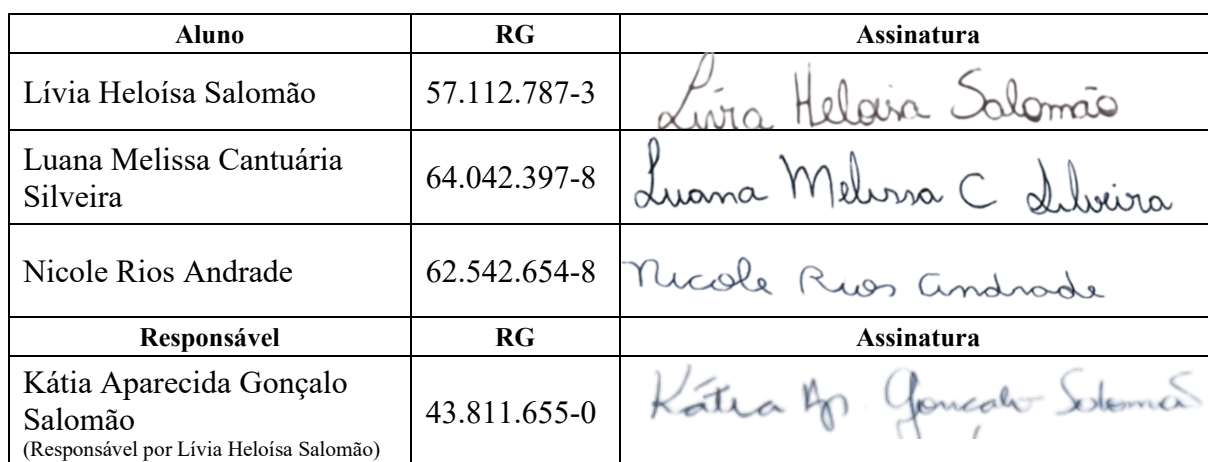 Aluno RG Assinatura
Lívia Heloísa Salomão 57.112.787-3 Lívia Heloisa Salomão
Luana Melissa Cantuária
Silveira 64.042.397-8 Luana Melissa C Silveira
Nicole Rios Andrade 62.542.654-8 Nicole Rios Andrade
Responsável RG Assinatura
Kátia Aparecida Gonçalo
Salomão 43.811.655-0 Kátia Ap. Gonçalo Salomão
(Responsável por Lívia Heloísa Salomão)